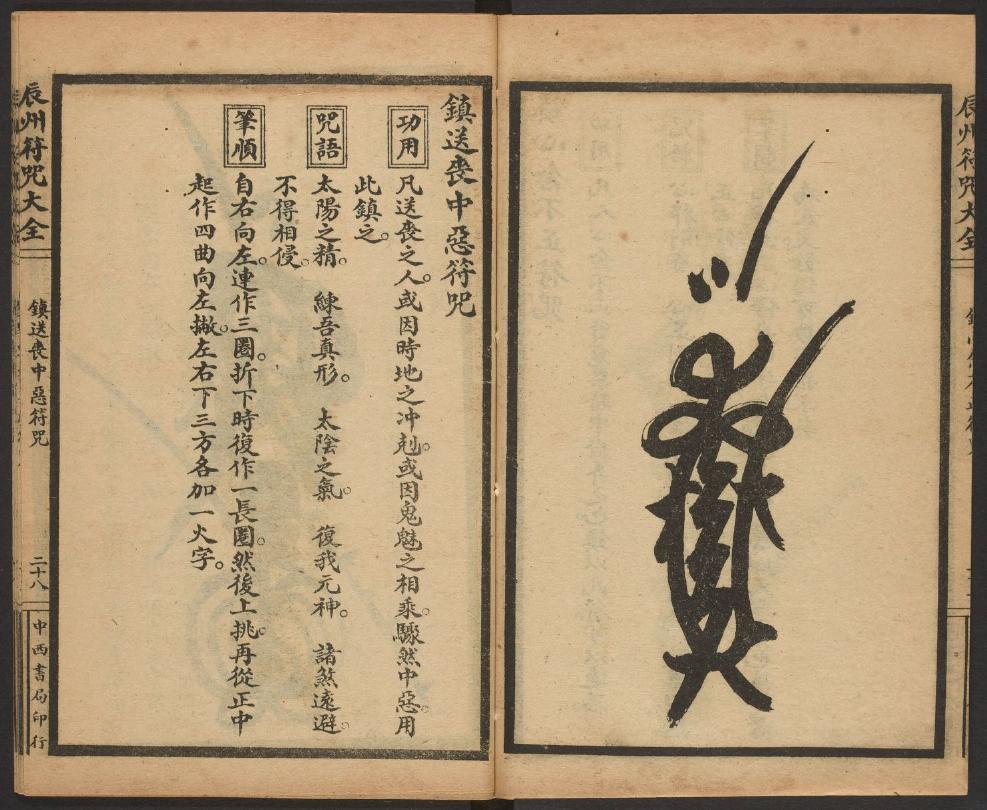 辰州符咒大全
鎮送喪中惡符咒
功用
凡送喪之人。或因時地之冲剋。或因鬼魅之相乘。驟然中惡。用
此鎮之。
咒語
太陽之精。 練吾真形。 太陰之氣。 復我元神。 諸煞遠避。
不得相侵。
筆順
自右向左。連作三圈。折下時復作一長圈。然後上挑。再從正中
起作四曲向左撇。左右下三方各加一火字。
辰州符咒大全
鎮送喪中惡符咒
二十八
中西書局印行